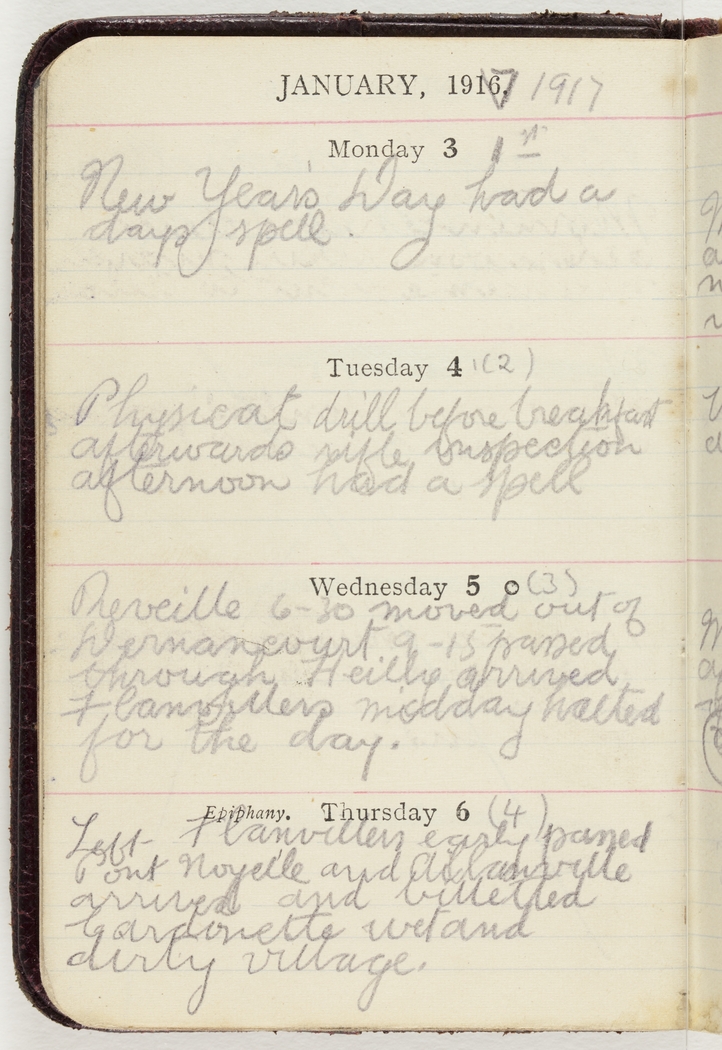 JANUARY, 1916. 7 1917
Monday 3 1st
New Year's Day had a
days spell.
Tuesday 4 (2)
Physical drill before breakfast
afterwards rifle inspection
afternoon had a spell
Wednesday 5 (3)
Reveille 6-30 moved out of
Dernancourt 9-15 passed
through Heilly arrived
Flanvillers midday halted
for the day.
Epiphany. Thursday 6 (4)
Left Flanvillers early passed
Pont Noyelle and Allanville
arrived and billetted
Cardonette wet and
dirty village.